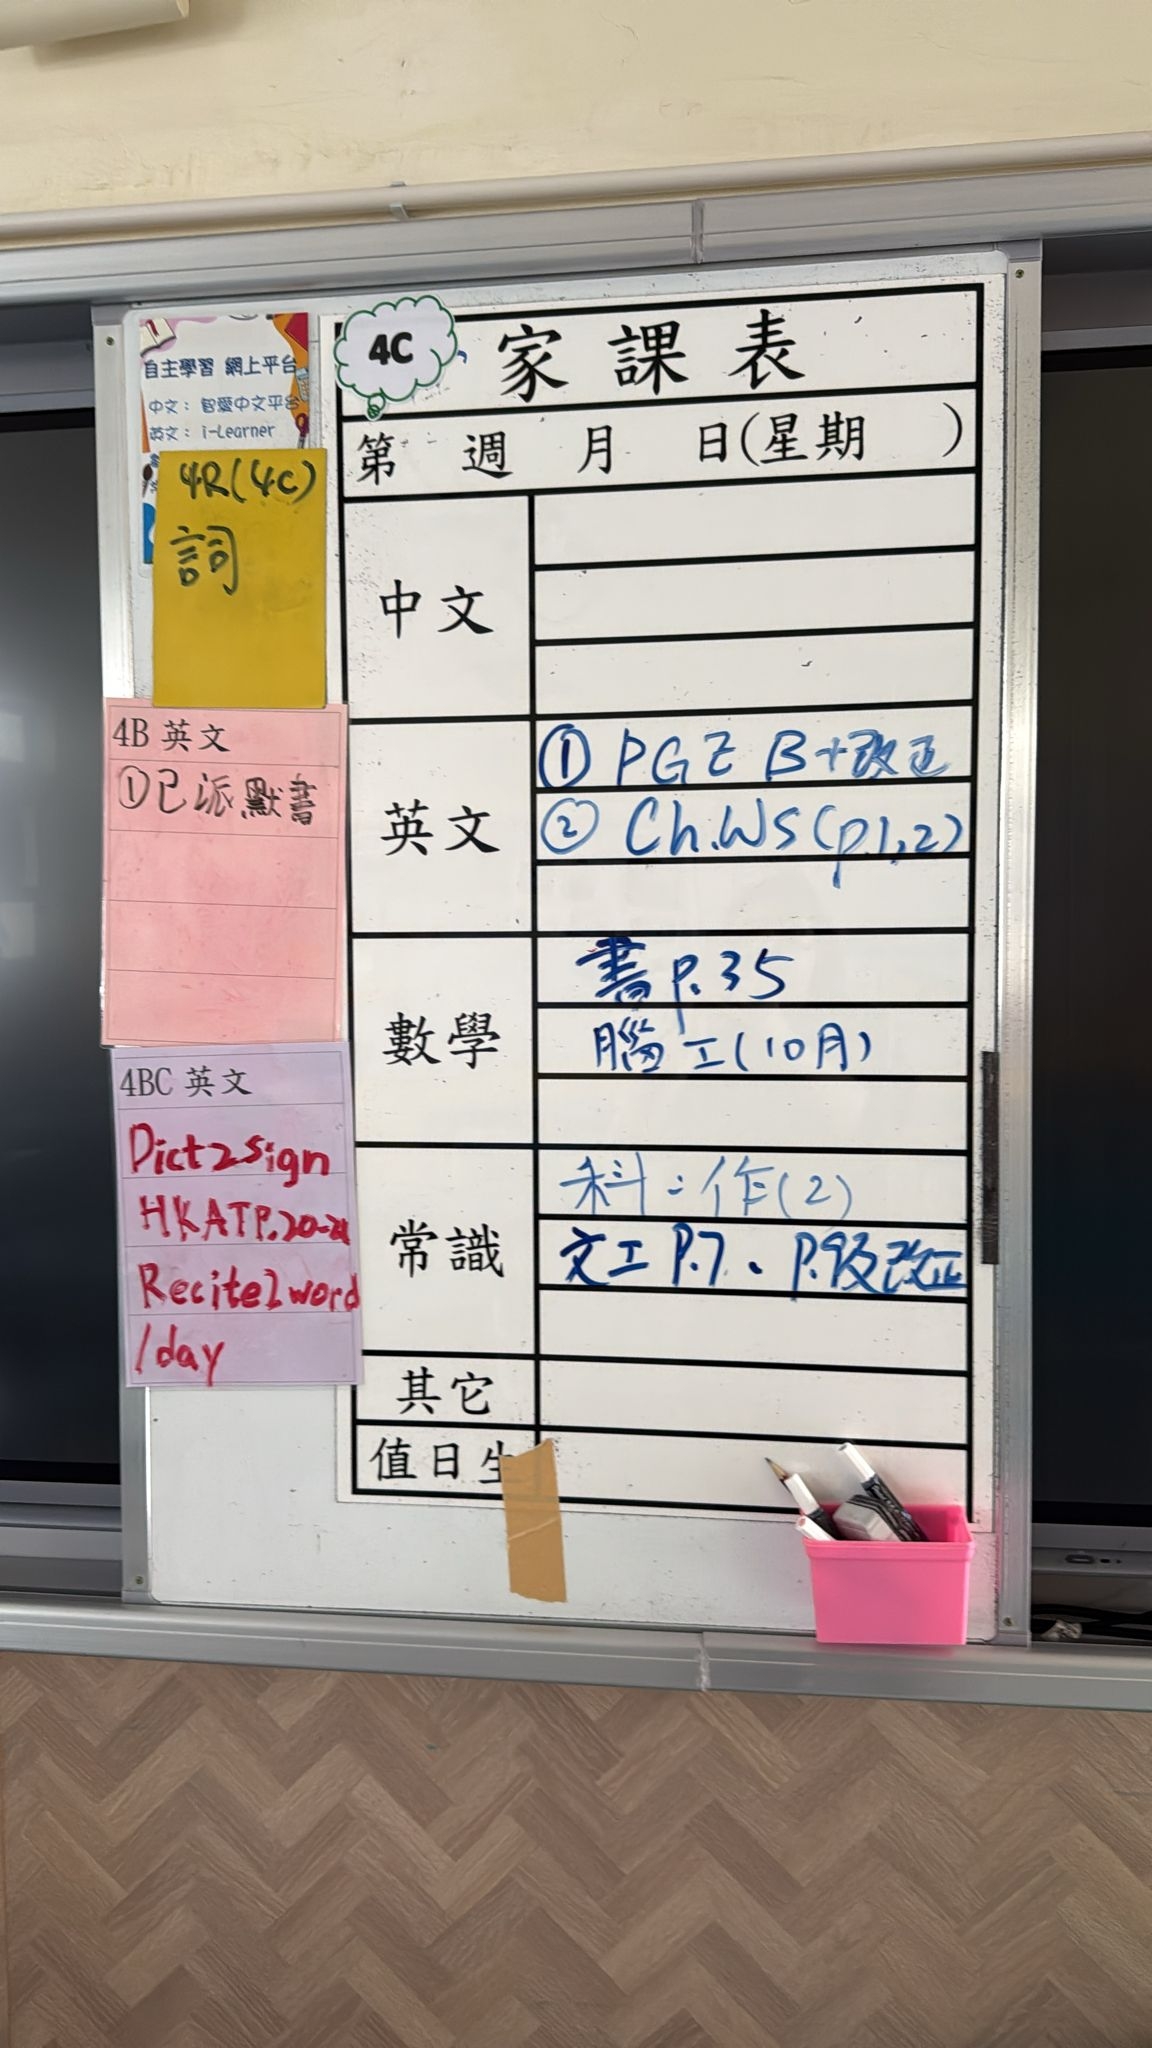 4C
家課表
第 週 月 日(星期 )
中文
英文
① PGE B+改正
② Ch.WS(p.1,2)
數學
書P.35
腦工(10月)
常識
科:作(2)
文工P.7、P.9及改正
其它
值日生
自主學習 網上平台
中文: 智愛中文平台
英文: i-Learner
4R(4C)
詞
4B 英文
①已派默書
4BC 英文
Dict2sign
HKATP.20-21
Recite2word
/day